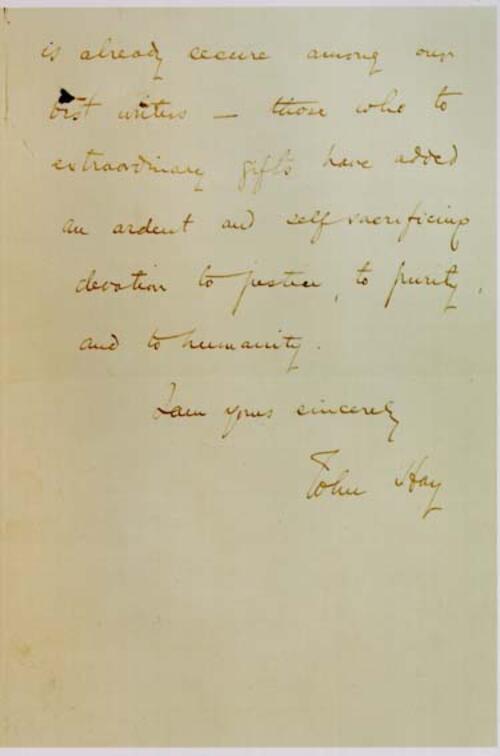 is already secure among our
best writers — those who to
extraordinary gifts have added
an ardent and self sacrificing
devotion to justice, to purity,
and to humanity.
I am yours sincerely
John Hay